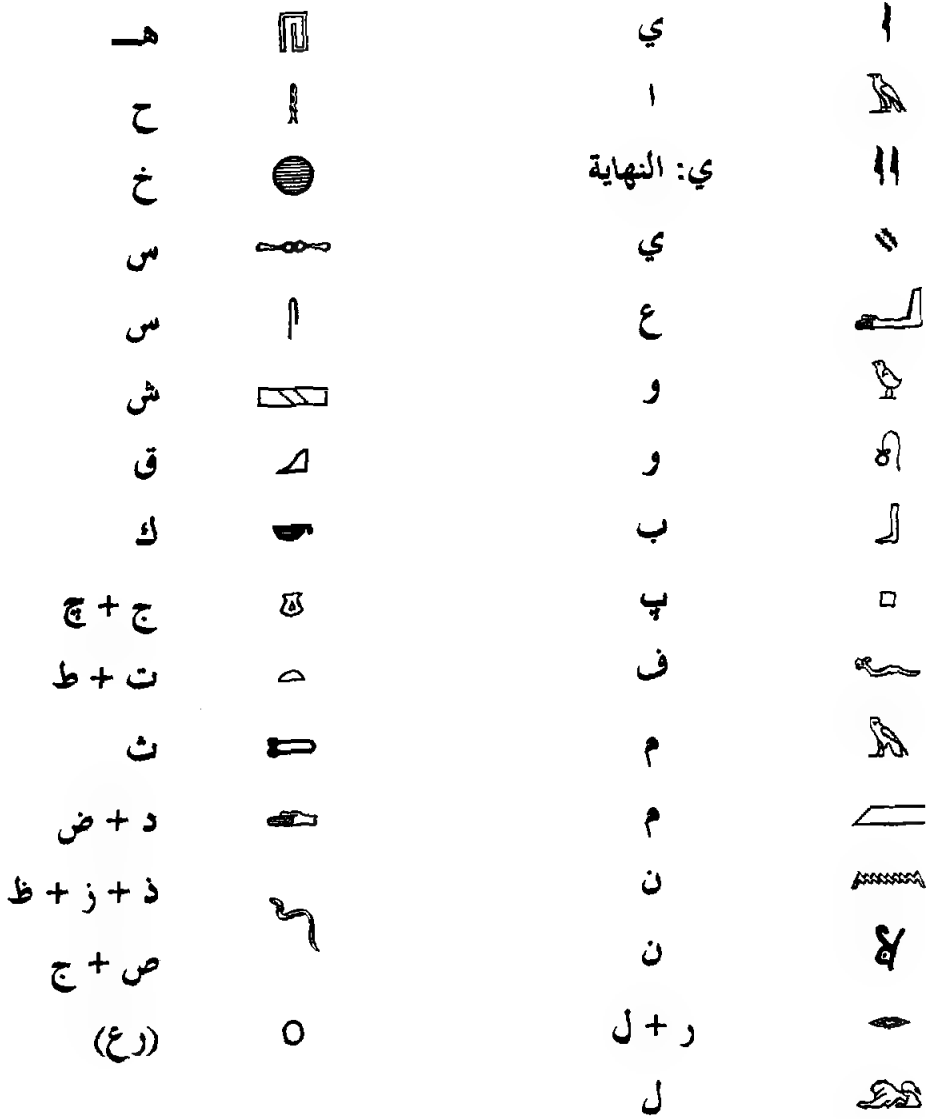 ي
ا
ي: النهاية
ي
ع
و
و
ب
پ
ف
م
م
ن
ن
ر + ل
ل
هـ
ح
خ
س
س
ش
ق
ك
ج + چ
ت + ط
ث
د + ض
ذ + ز + ظ
ص + ج
(رع)